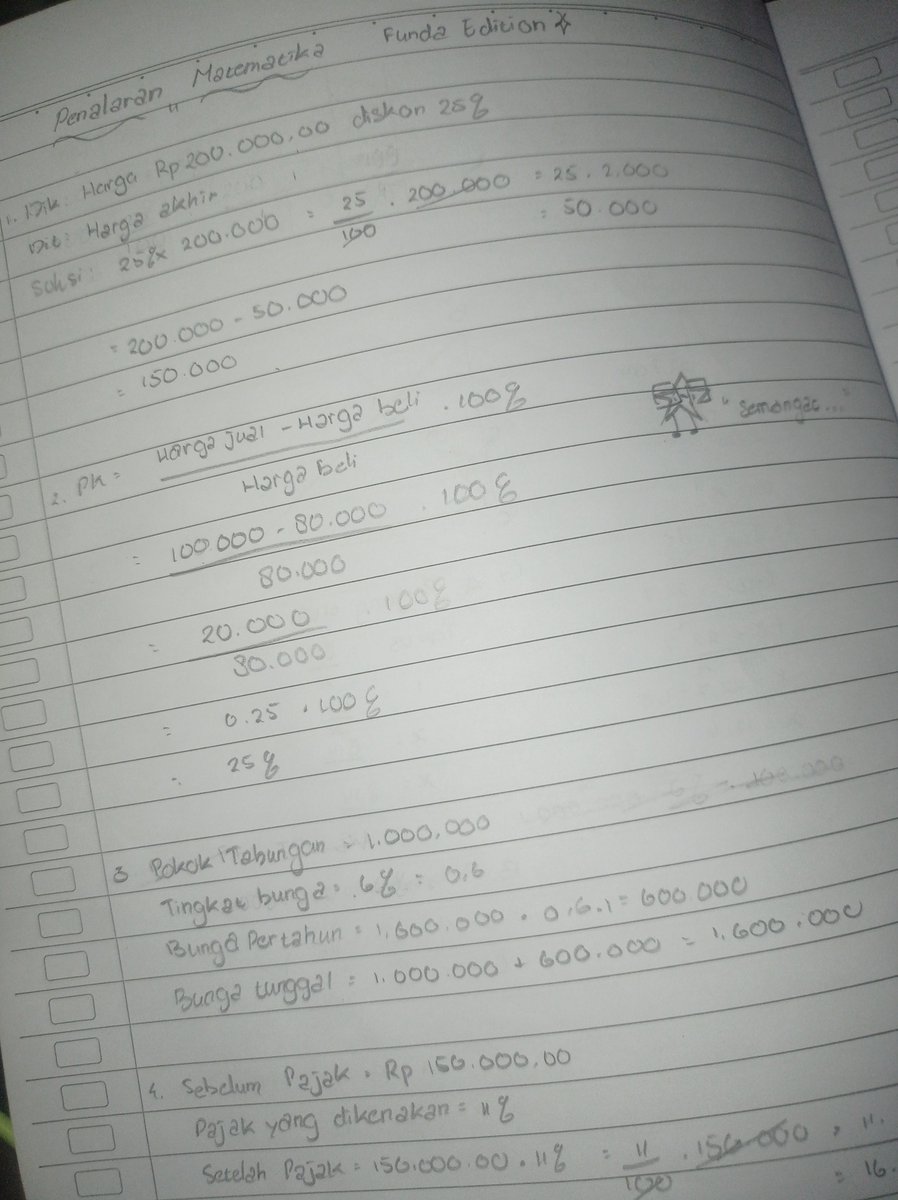 Penalaran Matematika Funda Edition
1. Dik: Harga Rp 200.000,00 diskon 25%
Dit: Harga akhir
Solusi: 25% x 200.000 = 25/100 . 200.000 = 25 . 2.000
= 50.000
= 200.000 - 50.000
= 150.000
2. PK = Harga jual - Harga beli / Harga beli . 100%
"Semangat..."
= 100.000 - 80.000 / 80.000 . 100%
= 20.000 / 80.000 . 100%
= 0.25 . 100%
= 25%
3 Pokok Tabungan = 1.000.000
Tingkat bunga = 6% = 0,6
Bunga Pertahun = 1.600.000 . 0,6.1 = 600.000
Bunga tunggal = 1.000.000 + 600.000 = 1.600.000
4. Sebelum Pajak = Rp 150.000,00
Pajak yang dikenakan = 11%
Setelah Pajak = 150.000.00 . 11% = 11/100 . 150.000 = 11.
= 16.